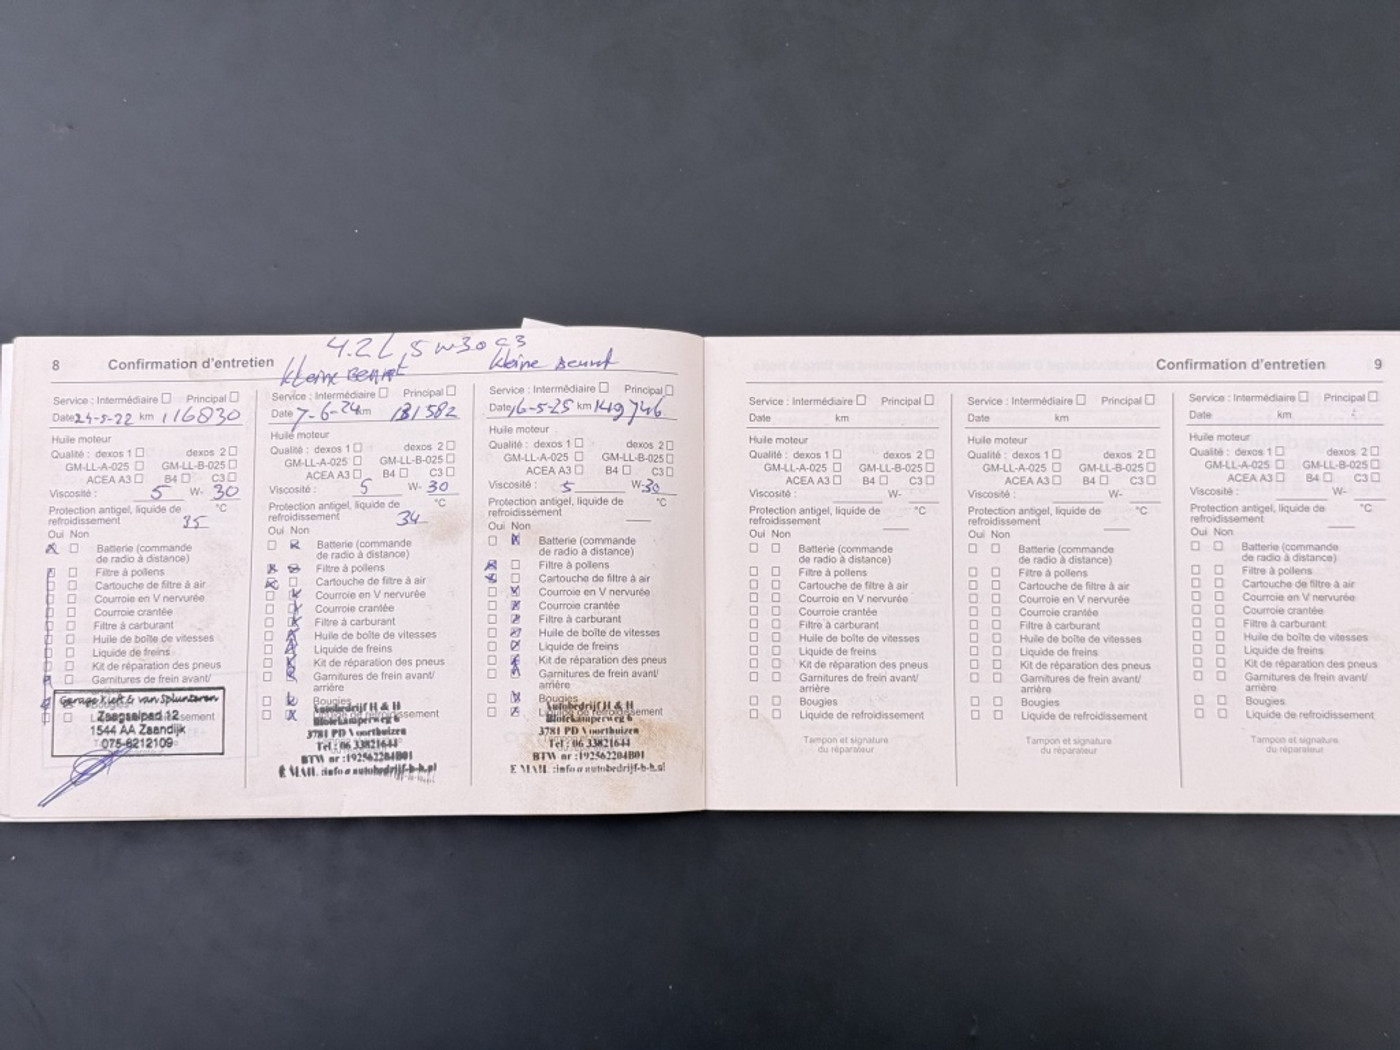 8 Confirmation d'entretien
4.2L 5w30 C3
kleine Beurt
kleine Beurt
Service : Intermédiaire Principal
Date 24-5-22 km 116830
Huile moteur
Qualité : dexos 1 dexos 2
GM-LL-A-025 GM-LL-B-025
ACEA A3 B4 C3
Viscosité : 5 W- 30
Protection antigel, liquide de refroidissement 35 °C
Oui Non
Batterie (commande
de radio à distance)
Filtre à pollens
Cartouche de filtre à air
Courroie en V nervurée
Courroie crantée
Filtre à carburant
Huile de boîte de vitesses
Liquide de freins
Kit de réparation des pneus
Garnitures de frein avant/
Garage Kieft & van Splunteren
Zaagselpad 12
1544 AA Zaandijk
075-6212109
Service : Intermédiaire Principal
Date 7-6-24 km 131582
Huile moteur
Qualité : dexos 1 dexos 2
GM-LL-A-025 GM-LL-B-025
ACEA A3 B4 C3
Viscosité : 5 W- 30
Protection antigel, liquide de °C
refroidissement 34
Oui Non
Batterie (commande
de radio à distance)
Filtre à pollens
Cartouche de filtre à air
Courroie en V nervurée
Courroie crantée
Filtre à carburant
Huile de boîte de vitesses
Liquide de freins
Kit de réparation des pneus
Garnitures de frein avant/
arrière
Bougies
Autobedrijf H & H
3781 PD Voorthuizen
Tel : 06 33821644
BTW nr :192562204B01
E MAIL :info@autobedrijf-h-h.nl
Service : Intermédiaire Principal
Date 16-5-25 km 149746
Huile moteur
Qualité : dexos 1 dexos 2
GM-LL-A-025 GM-LL-B-025
ACEA A3 B4 C3
Viscosité : 5 W-30
Protection antigel, liquide de °C
refroidissement
Oui Non
Batterie (commande
de radio à distance)
Filtre à pollens
Cartouche de filtre à air
Courroie en V nervurée
Courroie crantée
Filtre à carburant
Huile de boîte de vitesses
Liquide de freins
Kit de réparation des pneus
Garnitures de frein avant/
arrière
Bougies
Autobedrijf H & H
3781 PD Voorthuizen
Tel : 06 33821644
BTW nr :192562204B01
E MAIL :info@autobedrijf-h-h.nl
Confirmation d'entretien 9
Service : Intermédiaire Principal
Date km
Huile moteur
Qualité : dexos 1 dexos 2
GM-LL-A-025 GM-LL-B-025
ACEA A3 B4 C3
Viscosité : W-
Protection antigel, liquide de °C
refroidissement
Oui Non
Batterie (commande
de radio à distance)
Filtre à pollens
Cartouche de filtre à air
Courroie en V nervurée
Courroie crantée
Filtre à carburant
Huile de boîte de vitesses
Liquide de freins
Kit de réparation des pneus
Garnitures de frein avant/
arrière
Bougies
Liquide de refroidissement
Tampon et signature
du réparateur
Service : Intermédiaire Principal
Date km
Huile moteur
Qualité : dexos 1 dexos 2
GM-LL-A-025 GM-LL-B-025
ACEA A3 B4 C3
Viscosité : W-
Protection antigel, liquide de °C
refroidissement
Oui Non
Batterie (commande
de radio à distance)
Filtre à pollens
Cartouche de filtre à air
Courroie en V nervurée
Courroie crantée
Filtre à carburant
Huile de boîte de vitesses
Liquide de freins
Kit de réparation des pneus
Garnitures de frein avant/
arrière
Bougies
Liquide de refroidissement
Tampon et signature
du réparateur
Service : Intermédiaire Principal
Date km
Huile moteur
Qualité : dexos 1 dexos 2
GM-LL-A-025 GM-LL-B-025
ACEA A3 B4 C3
Viscosité : W-
Protection antigel, liquide de °C
refroidissement
Oui Non
Batterie (commande
de radio à distance)
Filtre à pollens
Cartouche de filtre à air
Courroie en V nervurée
Courroie crantée
Filtre à carburant
Huile de boîte de vitesses
Liquide de freins
Kit de réparation des pneus
Garnitures de frein avant/
arrière
Bougies
Liquide de refroidissement
Tampon et signature
du réparateur